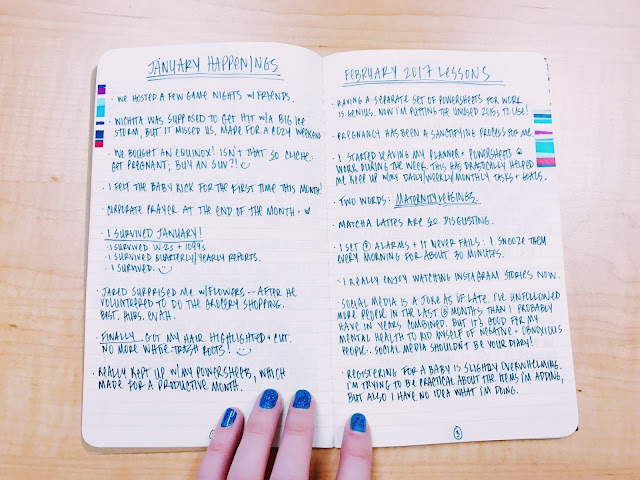 JANUARY HAPPENINGS
· WE HOSTED A FEW GAME NIGHTS W/ FRIENDS.
· WICHITA WAS SUPPOSED TO GET HIT W/ A BIG ICE
STORM, BUT IT MISSED US. MADE FOR A COZY WEEKEND
· WE BOUGHT AN EQUINOX! ISN'T THAT SO CLICHE:
GET PREGNANT, BUY AN SUV?! :)
· I FELT THE BABY KICK FOR THE FIRST TIME THIS MONTH!
· CORPORATE PRAYER AT THE END OF THE MONTH. ♥
· I SURVIVED JANUARY!
I SURVIVED W-2S + 1099S
I SURVIVED QUARTERLY/YEARLY REPORTS.
I SURVIVED. :)
· JARED SURPRISED ME W/ FLOWERS -- AFTER HE
VOLUNTEERED TO DO THE GROCERY SHOPPING.
BEST. HUBS. EVAH.
· FINALLY GOT MY HAIR HIGHLIGHTED + CUT.
NO MORE WHITE-TRASH ROOTS! :)
· REALLY KEPT UP W/ MY POWERSHEETS, WHICH
MADE FOR A PRODUCTIVE MONTH.
FEBRUARY 2017 LESSONS
· HAVING A SEPARATE SET OF POWERSHEETS FOR WORK
IS GENIUS. NOW I'M PUTTING THE UNUSED 2016S TO USE!
· PREGNANCY HAS BEEN A SANCTIFYING PROCESS FOR ME.
· I STARTED LEAVING MY PLANNER + POWERSHEETS @
WORK DURING THE WEEK. THIS HAS DRASTICALLY HELPED
ME KEEP UP W/ MY DAILY/WEEKLY/MONTHLY TASKS + GOALS.
· TWO WORDS: MATERNITY LEGGINGS.
· MATCHA LATTES ARE SO DISGUSTING.
· I SET ALARMS + IT NEVER FAILS: I SNOOZE THEM
EVERY MORNING FOR ABOUT 30 MINUTES.
· I REALLY ENJOY WATCHING INSTAGRAM STORIES NOW.
· SOCIAL MEDIA IS A JOKE AS OF LATE. I'VE UNFOLLOWED
MORE PEOPLE IN THE LAST MONTHS THAN I PROBABLY
HAVE IN YEARS COMBINED. BUT IT'S GOOD FOR MY
MENTAL HEALTH TO RID MYSELF OF NEGATIVE + OBNOXIOUS
PEOPLE. SOCIAL MEDIA SHOULDN'T BE YOUR DIARY!
· REGISTERING FOR A BABY IS SLIGHTLY OVERWHELMING.
I'M TRYING TO BE PRACTICAL ABOUT THE ITEMS I'M ADDING,
BUT ALSO I HAVE NO IDEA WHAT I'M DOING.